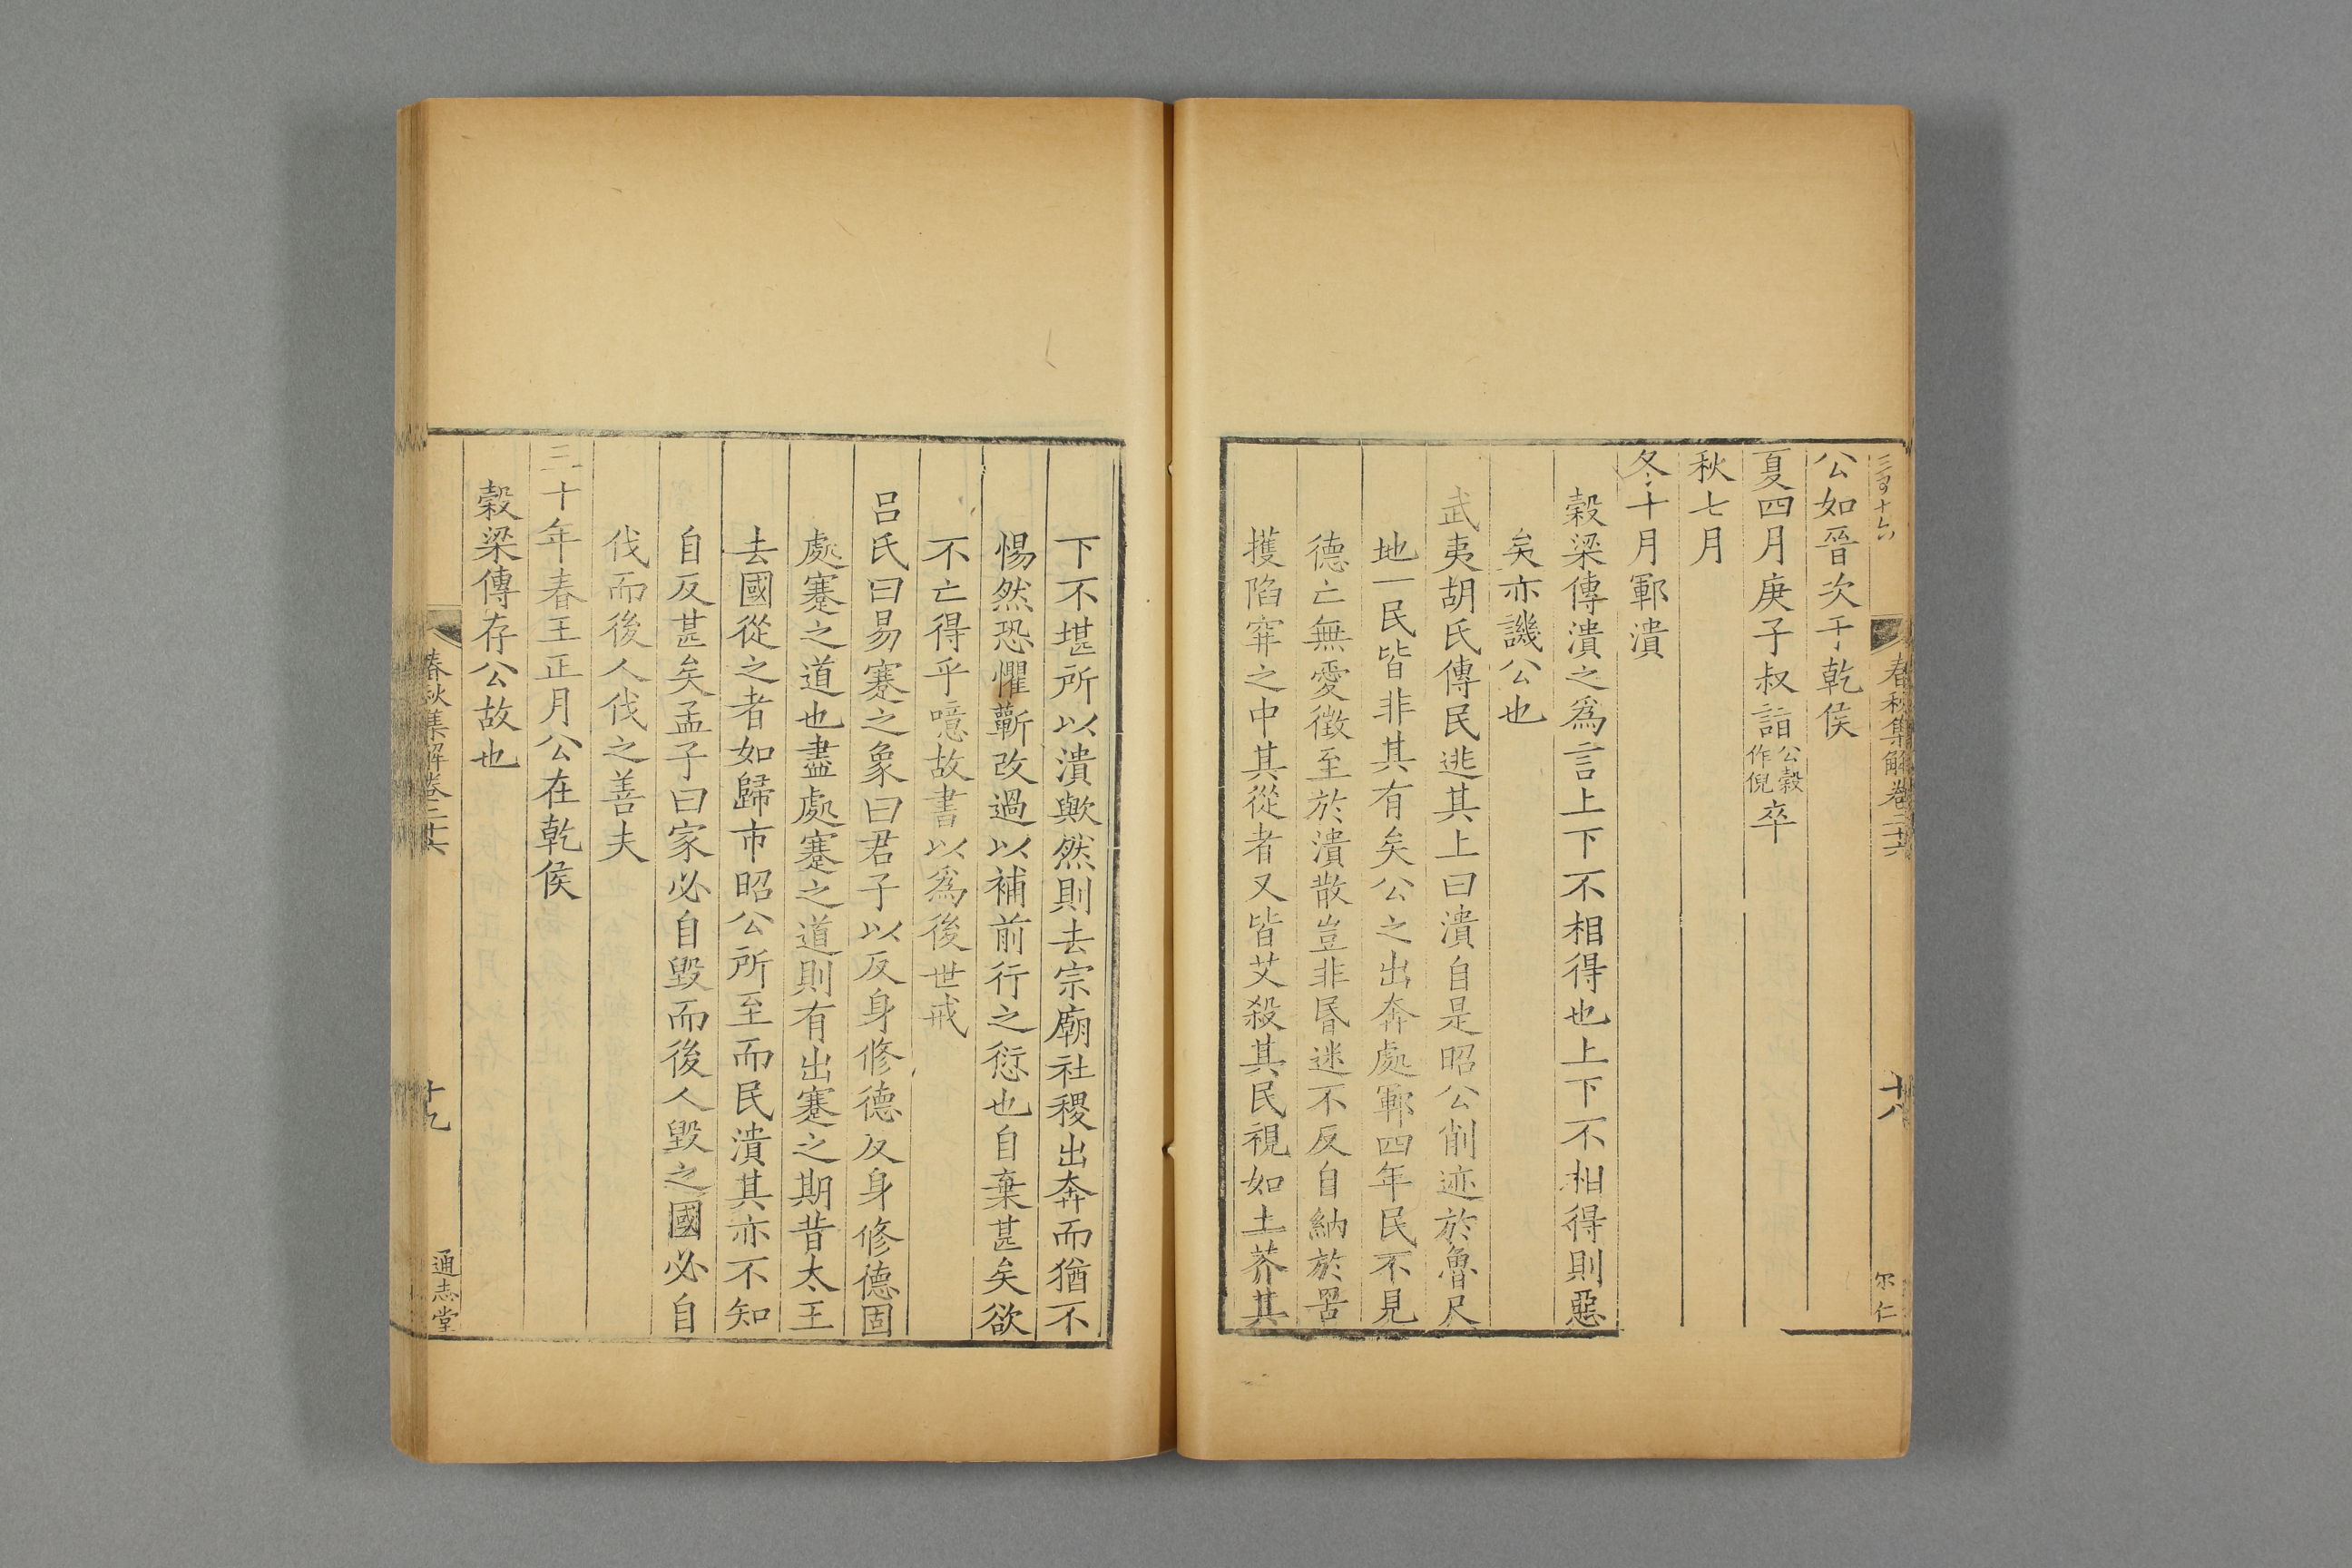 春秋集解卷二十六
十八
尔仁
公如晉次于乾侯
夏四月庚子叔詣公穀作倪卒
秋七月
冬十月鄆潰
穀梁傳潰之爲言上下不相得也上下不相得則惡
矣亦譏公也
武夷胡氏傳民逃其上曰潰自是昭公削迹於魯尺
地一民皆非其有矣公之出奔處鄆四年民不見
德亡無愛徵至於潰散豈非昏迷不反自納於罟
擭陷穽之中其從者又皆艾殺其民視如土芥其
下不堪所以潰歟然則去宗廟社稷出奔而猶不
惕然恐懼蘄改過以補前行之愆也自棄甚矣欲
不亡得乎噫故書以爲後世戒
呂氏曰易蹇之象曰君子以反身修德反身修德固
處蹇之道也盡處蹇之道則有出蹇之期昔太王
去國從之者如歸市昭公所至而民潰其亦不知
自反甚矣孟子曰家必自毀而後人毀之國必自
伐而後人伐之善夫
三十年春王正月公在乾侯
穀梁傳存公故也
春秋集解卷二十六
十九
通志堂